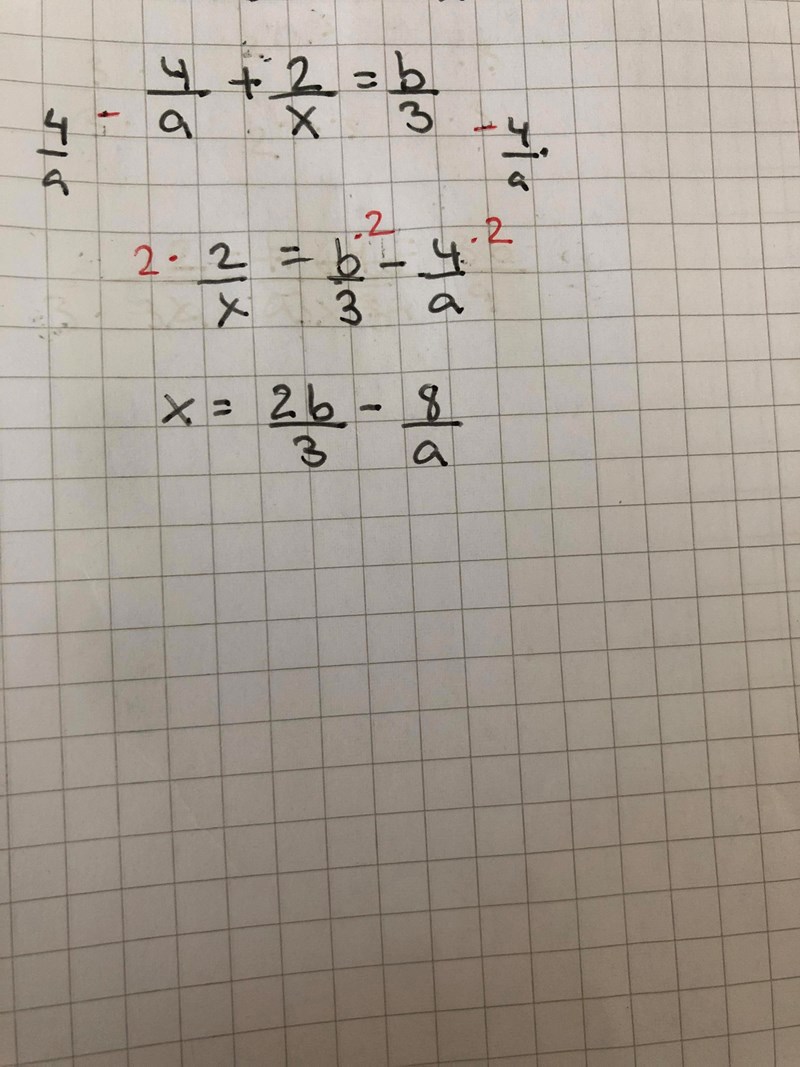 4/a + 2/x = b/3
4/a - - 4/a.
2 · 2/x = b/3 · 2 - 4/a · 2
x = 2b/3 - 8/a